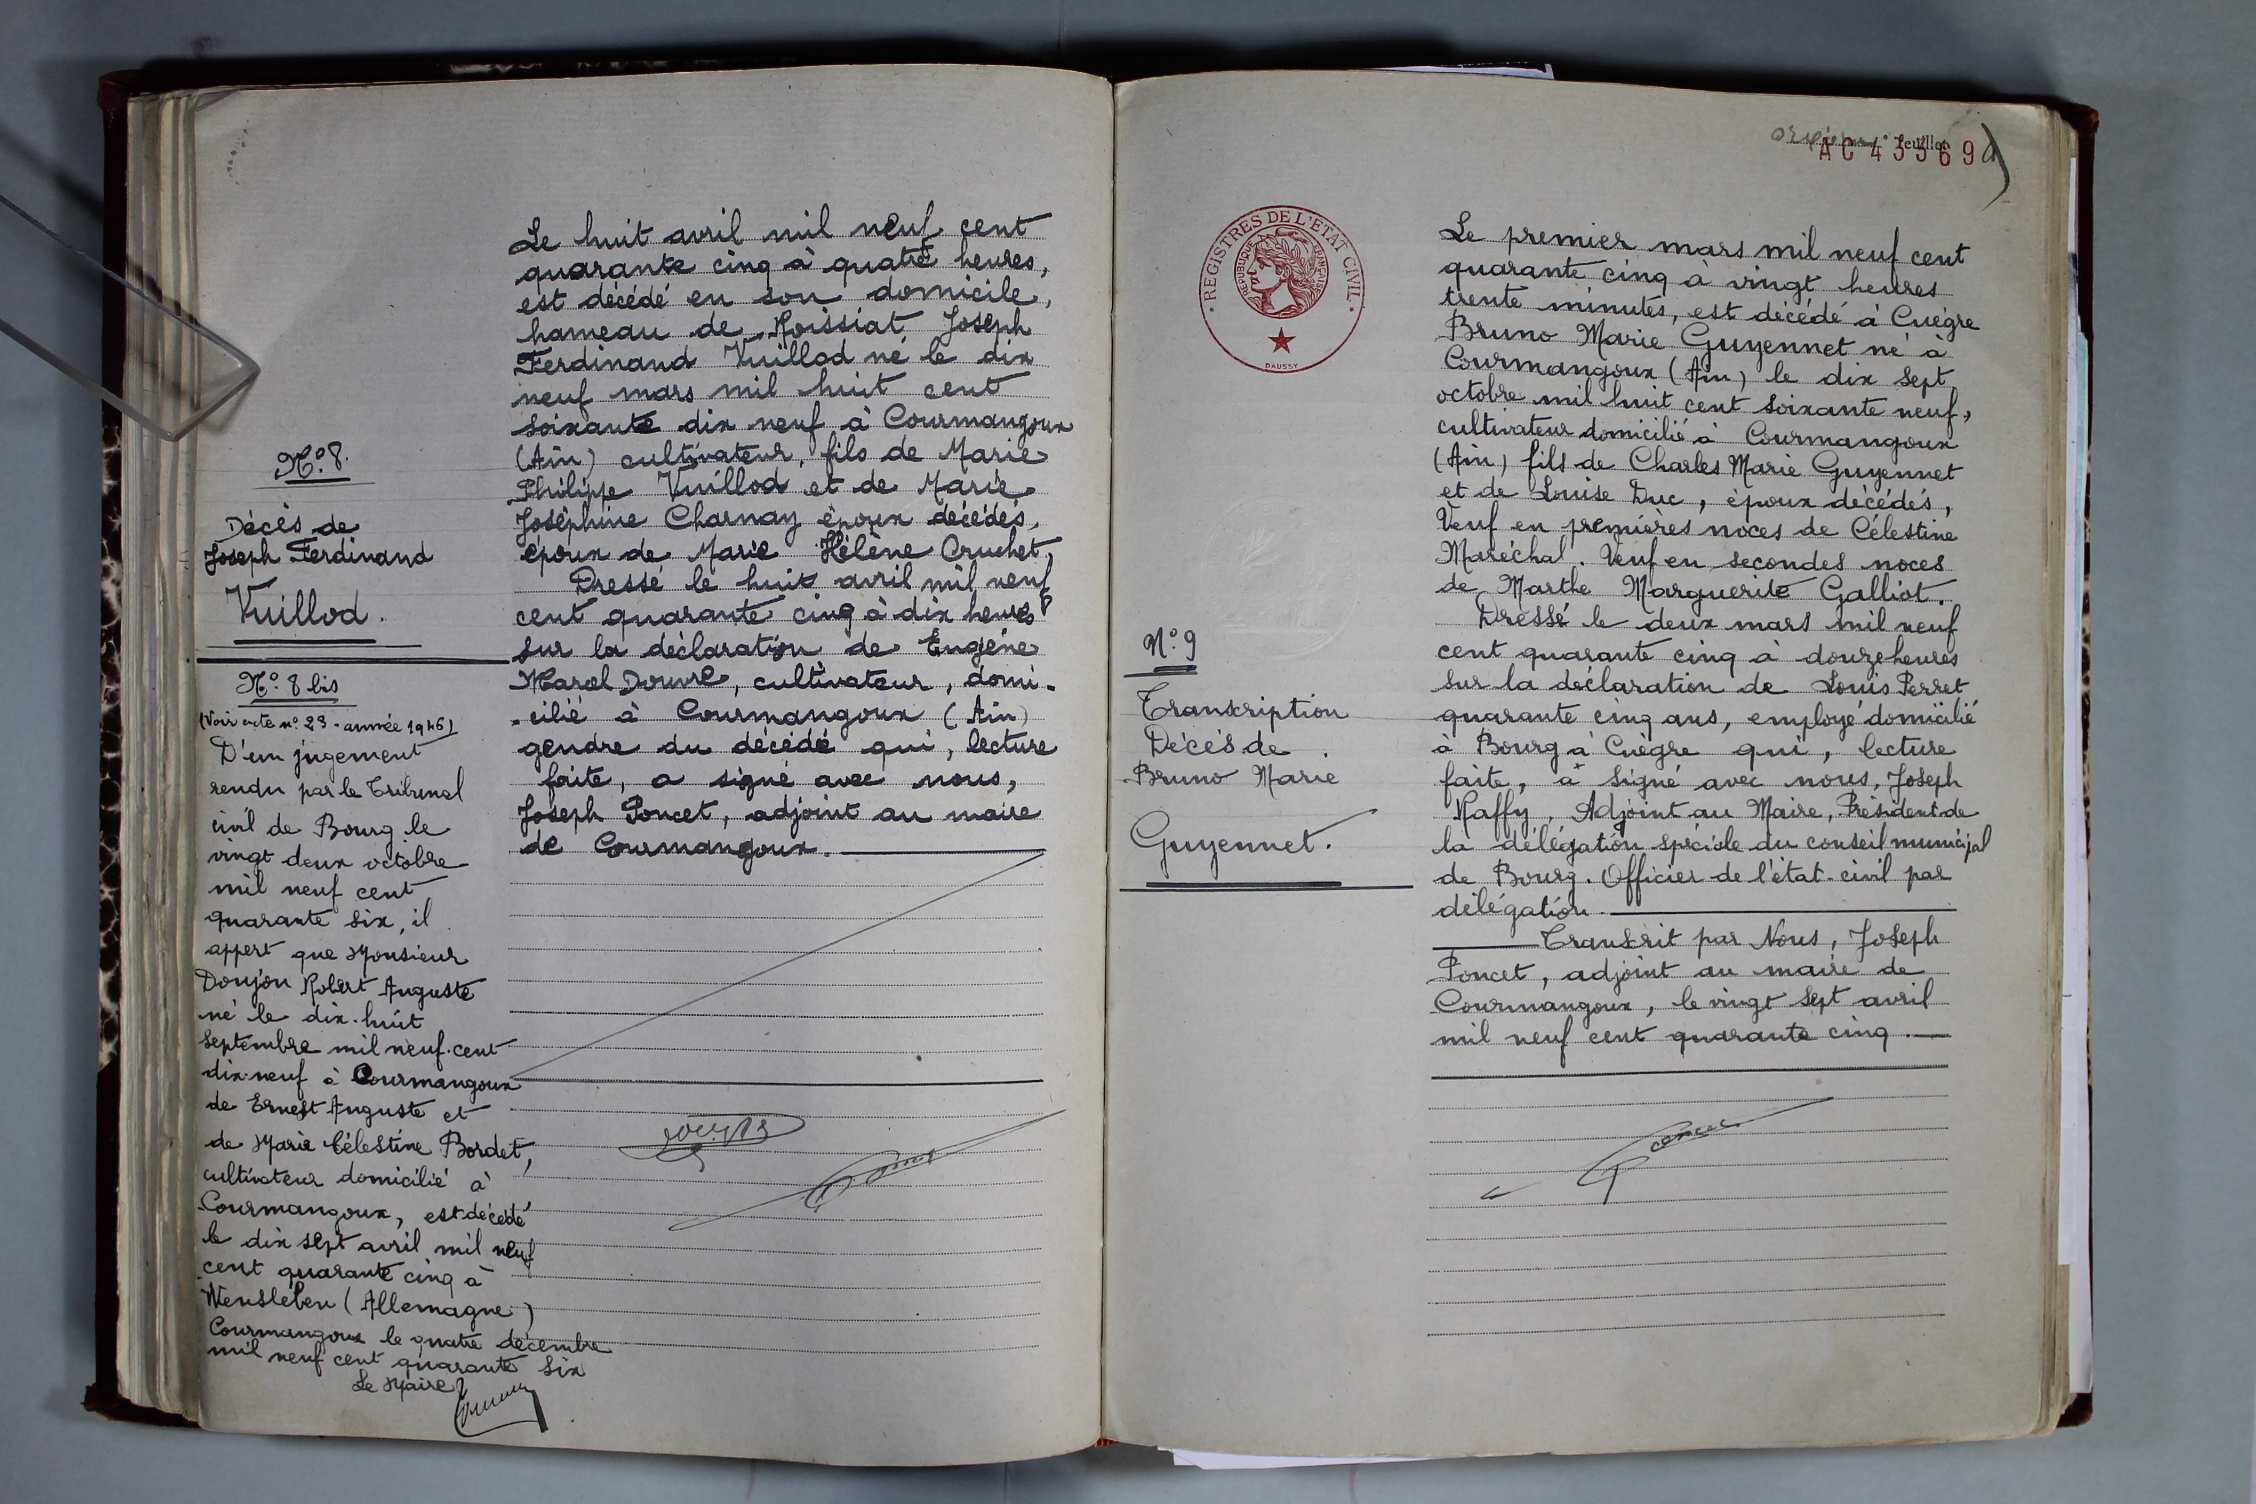 N° 8.
Décès de
Joseph Ferdinand
Vuillod.
N° 8 bis
(Voir acte n° 23 - année 1946)
D'un jugement
rendu par le Tribunal
civil de Bourg le
vingt deux octobre
mil neuf cent
quarante six, il
appert que Monsieur
Donjon Robert Auguste
né le dix-huit
septembre mil neuf-cent
dix-neuf à Courmangoux
de Ernest Auguste et
de Marie Célestine Bordet,
cultivateur domicilié à
Courmangoux, est décédé
le dix sept avril mil neuf
cent quarante cinq à
Wensleben (Allemagne)
Courmangoux le quatre décembre
mil neuf cent quarante six
Le Maire
Le huit avril mil neuf cent
quarante cinq à quatre heures,
est décédé en son domicile,
hameau de Roissiat Joseph
Ferdinand Vuillod né le dix
neuf mars mil huit cent
soixante dix neuf à Courmangoux
(Ain) cultivateur, fils de Marie
Philippe Vuillod et de Marie
Joséphine Charnay époux décédés,
époux de Marie Hélène Cruchet,
Dressé le huit avril mil neuf
cent quarante cinq à dix heures
sur la déclaration de Eugène
Marcel Douvre, cultivateur, domi-
-cilié à Courmangoux (Ain)
gendre du décédé qui, lecture
faite, a signé avec nous,
Joseph Poncet, adjoint au maire
de Courmangoux.
feuillet
AC 43369
REGISTRES DE L'ÉTAT CIVIL
RÉPUBLIQUE FRANÇAISE
DAUSSY
N° 9
Transcription
Décès de
Bruno Marie
Guyennet.
Le premier mars mil neuf cent
quarante cinq à vingt heures
trente minutes, est décédé à Cuègre
Bruno Marie Guyennet né à
Courmangoux (Ain) le dix sept
octobre mil huit cent soixante neuf,
cultivateur domicilié à Courmangoux
(Ain) fils de Charles Marie Guyennet
et de Louise Duc, époux décédés,
Veuf en premières noces de Célestine
Maréchal. Veuf en secondes noces
de Marthe Marguerite Galliot.
Dressé le deux mars mil neuf
cent quarante cinq à douze heures
sur la déclaration de Louis Perret
quarante cinq ans, employé domicilié
à Bourg à Cuègre qui, lecture
faite, a signé avec nous, Joseph
Raffy, Adjoint au Maire, Président de
la délégation spéciale du conseil municipal
de Bourg. Officier de l'état-civil par
délégation.
Transcrit par Nous, Joseph
Poncet, adjoint au maire de
Courmangoux, le vingt sept avril
mil neuf cent quarante cinq.
Poncet